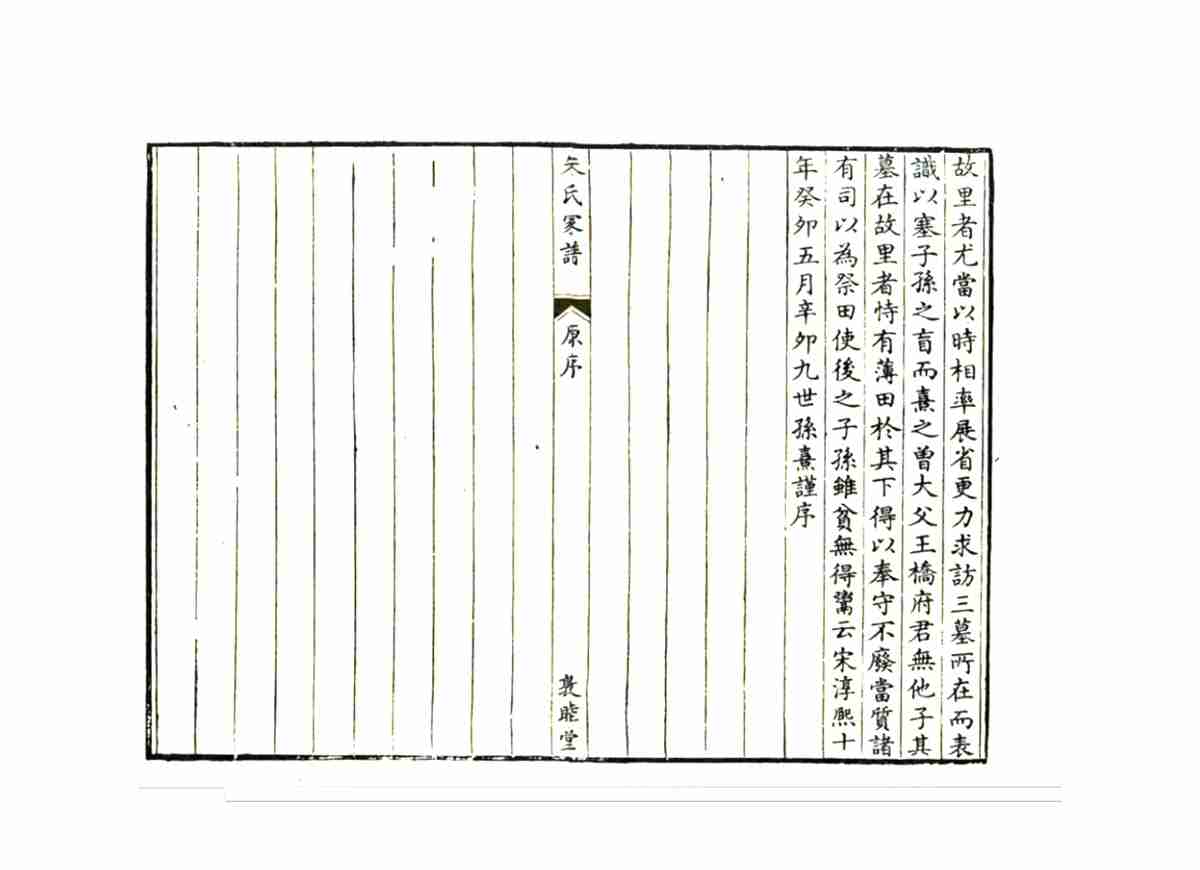 故里者尤當以時相率展省更力求訪三墓所在而表
識以塞子孫之盲而熹之曾大父王橋府君無他子其
墓在故里者恃有薄田於其下得以奉守不廢當質諸
有司以為祭田使後之子孫雖貧無得鬻云宋淳熙十
年癸卯五月辛卯九世孫熹謹序
朱氏家譜
原序
睦堂